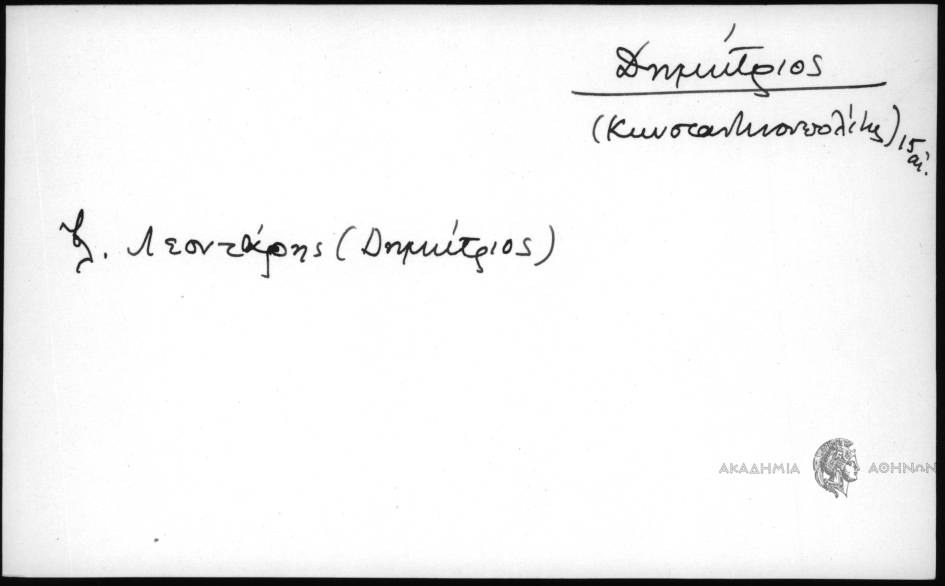 Δημήτριος
(Κωνσταντινουπολίτης) 15 αἰ.
Λεοντάρης (Δημήτριος)
ΑΚΑΔΗΜΙΑ ΑΘΗΝΩΝ